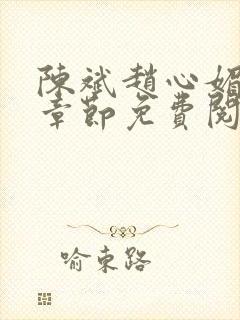 陳斌趙心媚
章節免費閱
喻東路